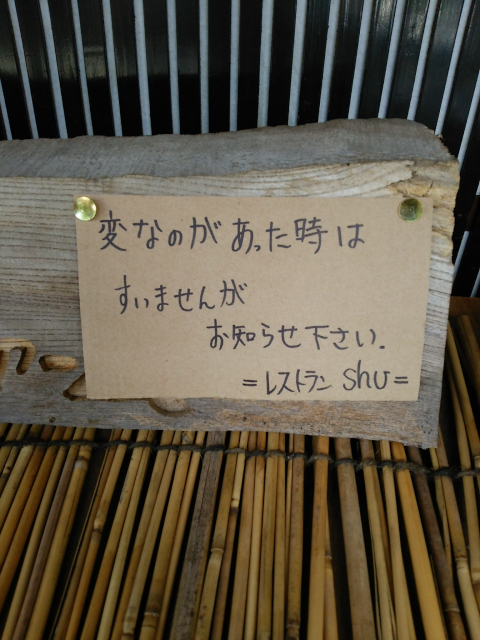 変なのがあった時は
すいませんが
お知らせ下さい.
=レストラン shu=